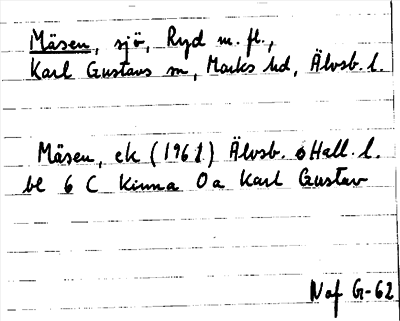 Mäsen, sjö, Ryd m. fl.,
Karl Gustavs sn, Marks hd, Älvsb. l.
Mäsen, ek (1961) Älvsb. o Hall. l.
bl 6 C Kinna Oa Karl Gustav
Naf G-62